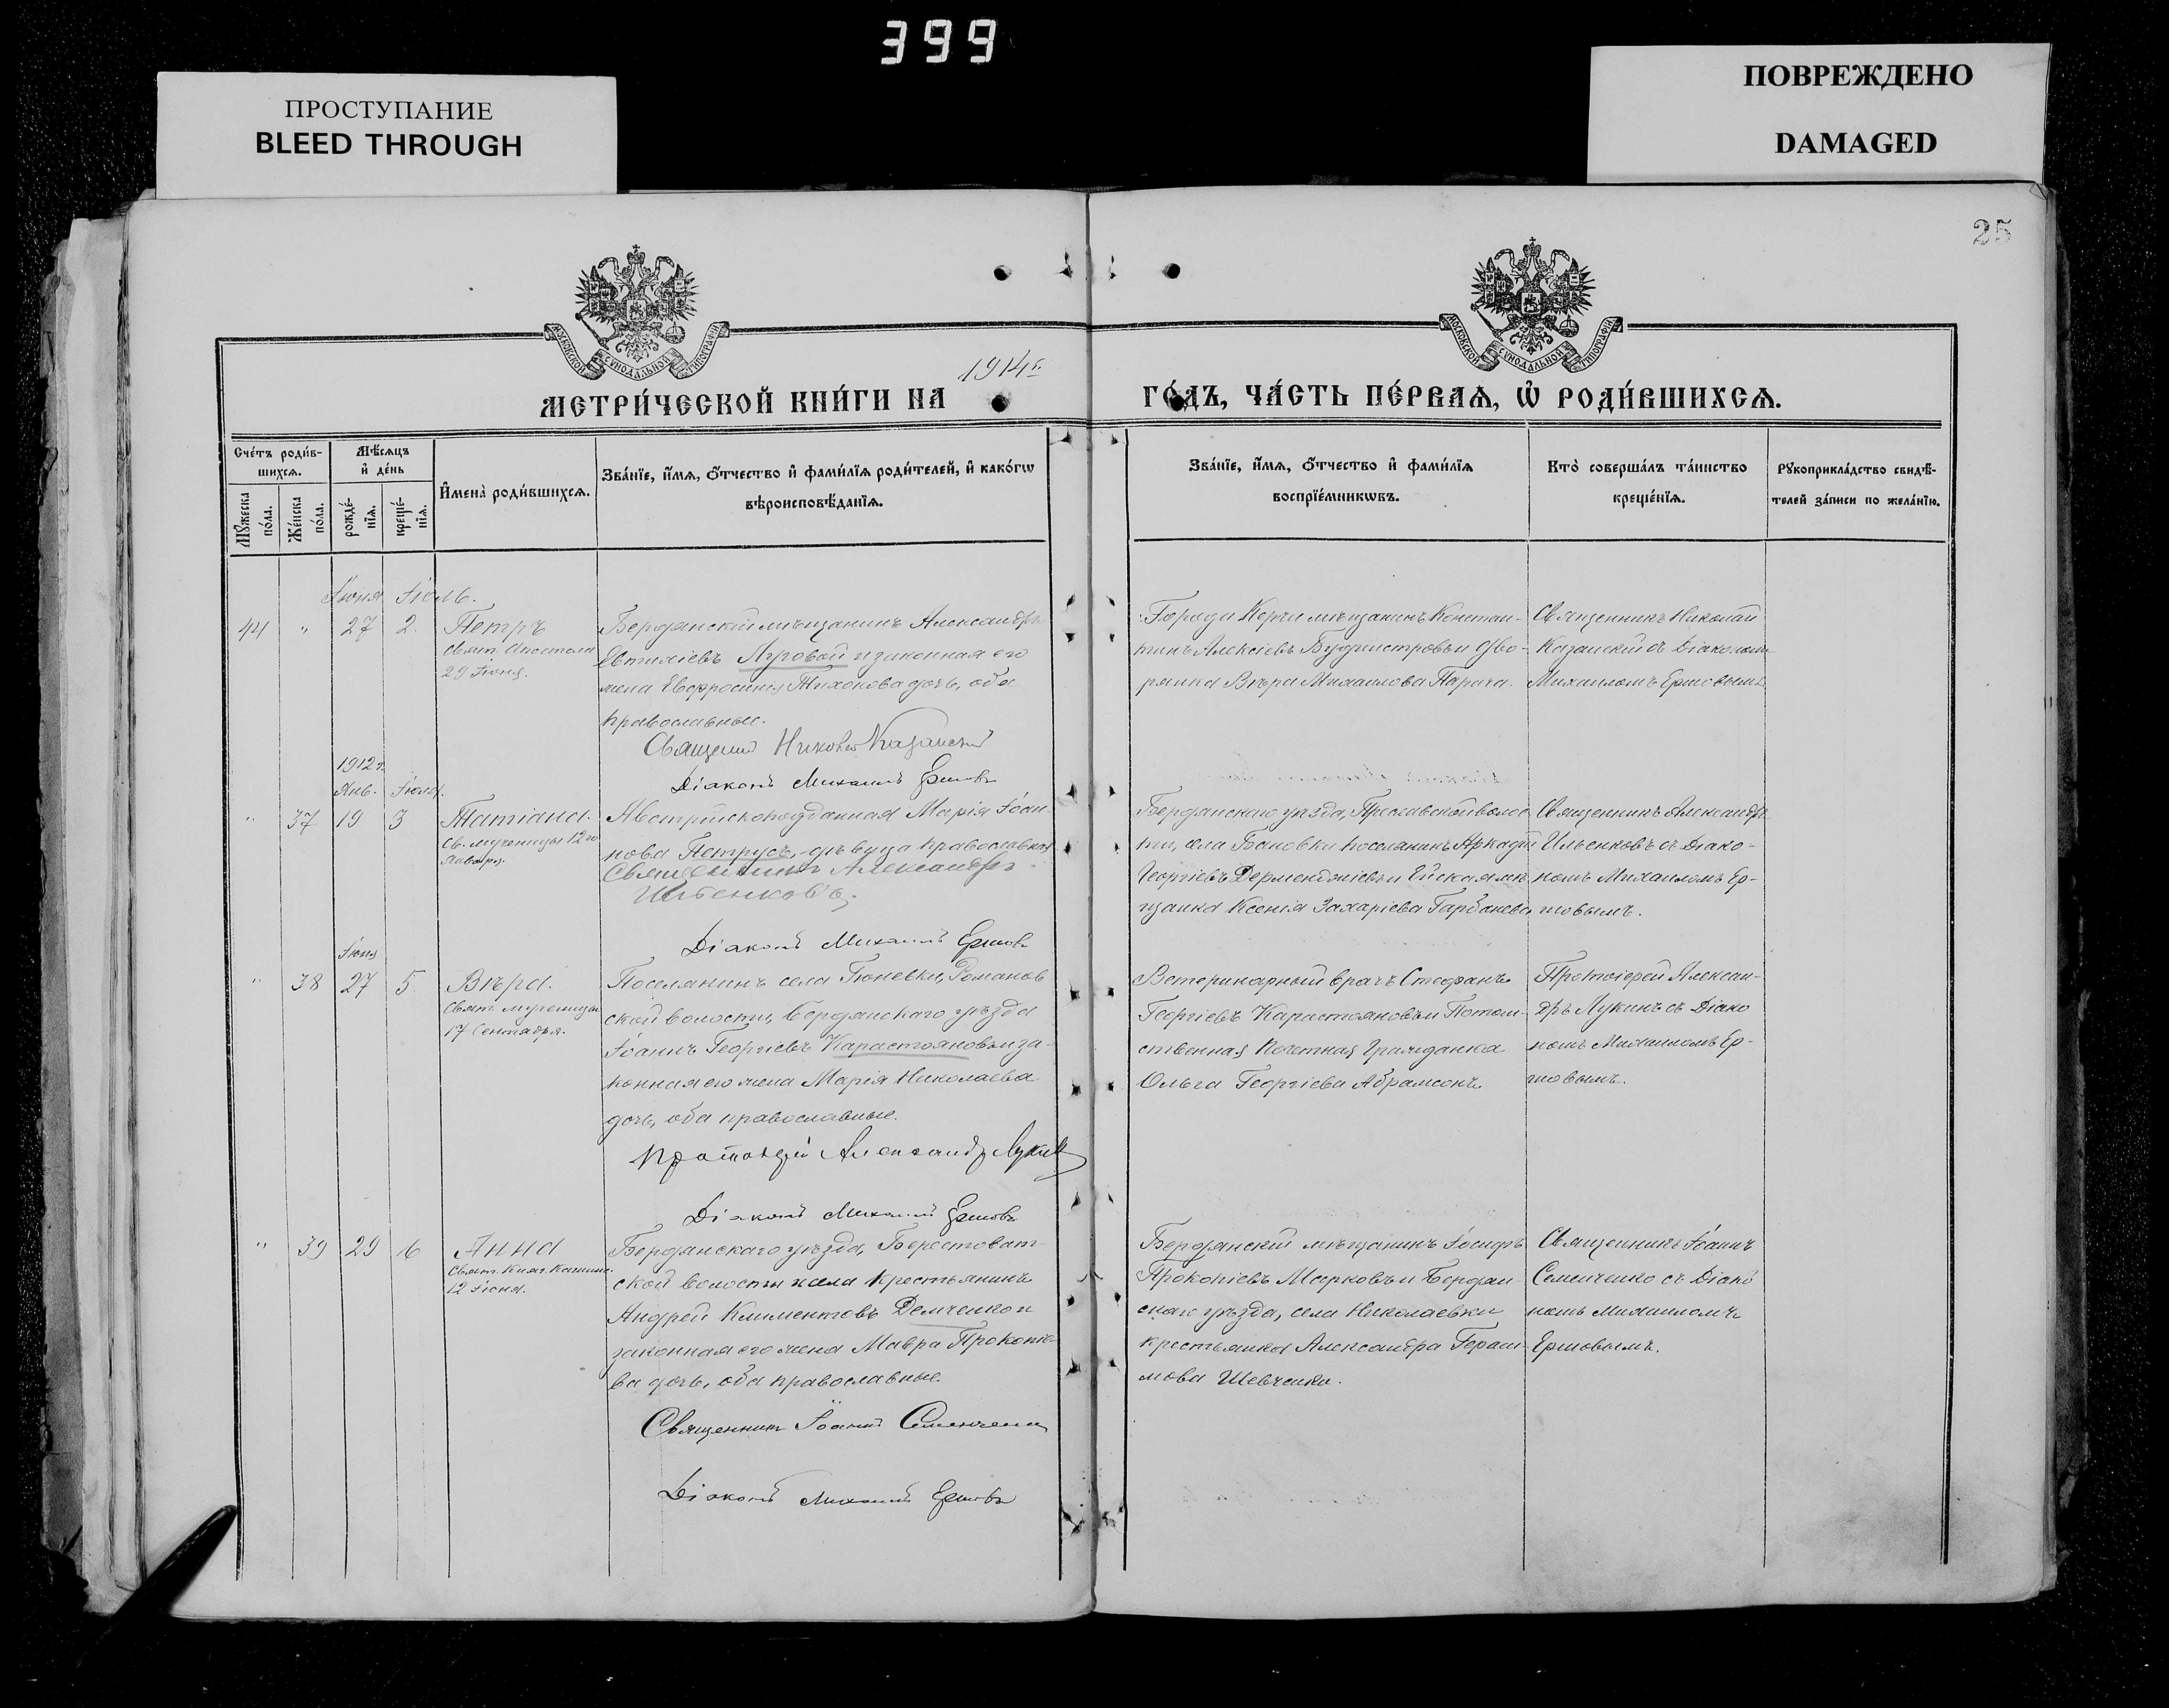 399
ПРОСТУПАНИЕ
BLEED THROUGH
ПОВРЕЖДЕНО
DAMAGED
25
МОСКОВСКОЙ СѴНОДАЛЬНОЙ ТИПОГРАФІИ
МОСКОВСКОЙ СѴНОДАЛЬНОЙ ТИПОГРАФІИ
МЕТРИ́ЧЕСКОЙ КНИ́ГИ НА 1914 г. ГО́ДЪ, ЧА́СТЬ ПЕ́РВАѦ, Ѡ҆ РОДИ́ВШИХСѦ.
Сче́тъ роди́в-
шихсѧ.
Мꙋжеска по́ла.
Же́нска по́ла.
Мѣ́сѧцъ
и҆ де́нь
рожде́-
нїѧ.
креще́-
нїѧ.
И҆мена̀ роди́вшихсѧ.
Зва́нїе, и҆́мѧ, ѻ҆́тчество и҆ фами́лїѧ роди́телей, и҆ како́гѡ
вѣроисповѣ́данїѧ.
Зва́нїе, и҆́мѧ, ѻ҆́тчество и҆ фами́лїѧ
воспрїе́мникѡвъ.
Кто̀ соверша́лъ та́инство
креще́нїѧ.
Рꙋкоприкла́дство свидѣ́-
телей за́писи по жела́нїю.
Іюня Іюль.
44 " 27 2.
Петръ
Свят. Апостола
29 Іюня.
Бердянскій мѣщанинъ Александръ
Евтихіевъ Луговой и законная его
жена Евфросинія Тихонова дочь, оба
православные.
Священник Николай Казанскій
Діаконъ Михаилъ Ершовъ
Города Керчи мѣщанинъ Констан-
тинъ Алексіевъ и дво-
рянка Вѣра Михаилова
Священникъ Николай
Казанскій съ Діакономъ
Михаиломъ Ершовымъ
1912 г.
Янв. Іюля.
" 37 19 3
Татіана.
Св. мученицы 12го
Января.
Австрійскоподданная Марія Іоан-
нова Петрусь, дѣвица православная
Священникъ Александръ
Ильенковъ.
Діаконъ Михаилъ Ершовъ
Бердянскаго уѣзда, Преславской волос
ти, села Бановки поселянинъ Аркадій
Георгіевъ Дерменджіевъ и Ейская мѣ
щанка Ксенія Захаріева
Священникъ Александръ
Ильенковъ съ Діако-
номъ Михаиломъ Ер-
шовымъ.
Іюня
" 38 27 5
Вѣра.
Свят. мученицы
17 Сентября.
Поселянинъ села Гюневки, Романов
ской волости, Бердянскаго уѣзда
Іоаннъ Георгіевъ Карастояновъ и за-
конная его жена Марія Николаева
дочь, оба православные.
Протоіерей Александр Лукин
Діаконъ Михаилъ Ершовъ
Ветеринарный врачъ Стефанъ
Георгіевъ Карастояновъ и Потом-
ственная Почетная Гражданка
Ольга Георгіева Абрамсонъ
Протоіерей Алексан-
дръ Лукинъ съ Діако
номъ Михаиломъ Ер-
шовымъ.
" 39 29 6
Анна
Свят. Княг. Кашинс.
12 Іюня.
Бердянскаго уѣзда, Берестоват-
ской волости и села крестьянинъ
Андрей Климентовъ Демченко и
законная его жена Мавра Прокопіе-
ва дочь, оба православные.
Священникъ Іоаннъ Семенченко
Діаконъ Михаилъ Ершовъ
Бердянскій мѣщанинъ Іосифъ
Прокопіевъ Марковъ и Бердян-
скаго уѣзда, села Николаевки
крестьянка Александра Гераси-
мова Шевченко.
Священникъ Іоаннъ
Семенченко съ Діако
номъ Михаиломъ
Ершовымъ.